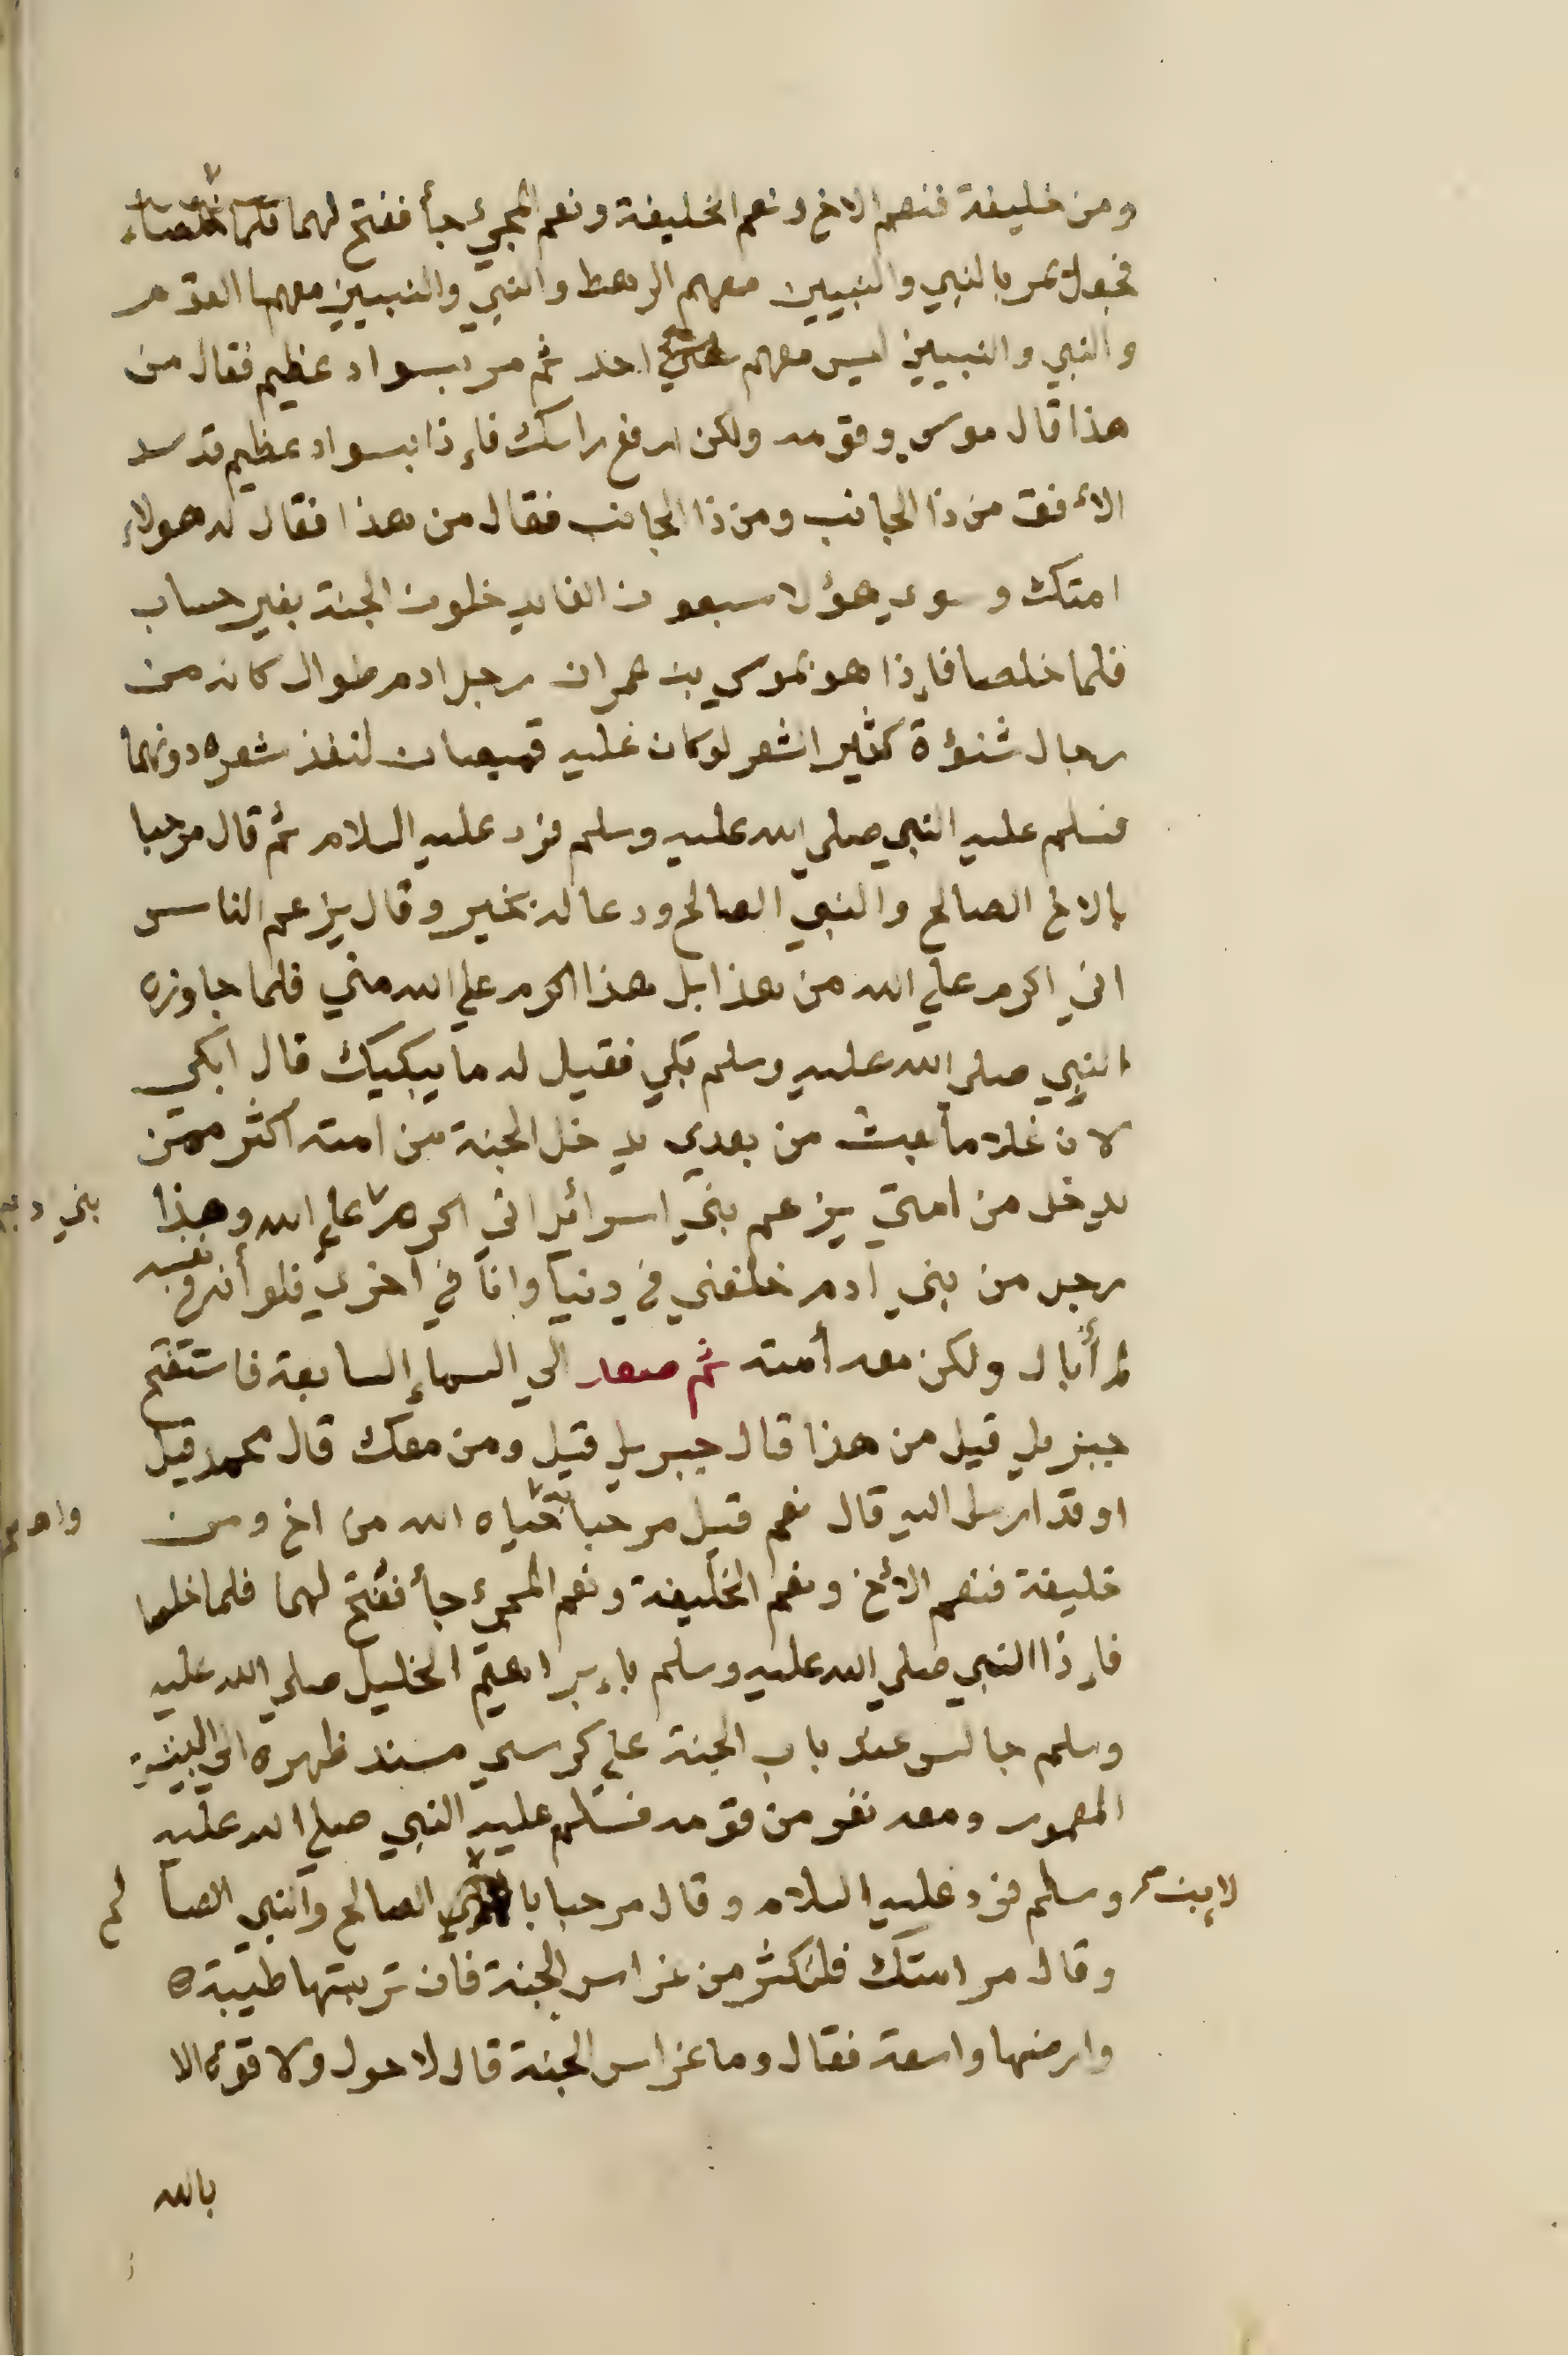 ومن خليفة فنعم الاخ ونعم الخليفة ونعم المجيء جأ ففتح لهما فلما خلصا
فجعل يمر بالنبي والنبيين معهم الرهط والنبي والنبيين معهما القوم
والنبي والنبيين ليس معهم احد ثم مر بسواد عظيم فقال من
هذا قال موسي وقومه ولكن ارفع راسك فإذا بسواد عظيم قد سد
الأفق من ذا الجانب ومن ذا الجانب فقال من هذا فقال له هولاء
امتك وسوي هؤلا سبعون الفا يدخلون الجنة بغير حساب
فلما خلصا فإذا هو بموسي بن عمران رجل ادم طوال كانه من
رجال شنؤة كثير الشعر لوكان عليه قميصان لنفذ شعره دونهما
فسلم عليه النبي صلي الله عليه وسلم فرد عليه السلام ثم قال مرحبا
بالاخ الصالح والنبي الصالح ودعا له بخير وقال يزعم الناس
اني اكرم علي الله من هذا بل هذا اكرم علي الله مني فلما جاوزه
النبي صلي الله عليه وسلم بكي فقيل له ما يبكيك قال ابكي
لان غلاما بعث من بعدي يدخل الجنة من امته اكثر ممن
يدخل من امتي يزعم بني اسرائل اني اكرم علي الله وهذا
بني
رجل من بني ادم خلفني في دنيا وانا في اخري فلو أنه في نفسه
لم أبال ولكن معه أمته ثم صعد الي السماء السابعة فاستفتح
جبريل قيل من هذا قال جبريل قيل ومن معك قال محمد قيل
اوقد ارسل اليه قال نعم قيل مرحبا به حياه الله من اخ ومن
خليفة فنعم الأخ ونعم الخليفة ونعم المجيء جأ ففتح لهما فلما خلصا
فإذا النبي صلي الله عليه وسلم بإبراهيم الخليل صلي الله عليه
وسلم جالس عند باب الجنة علي كرسي مسند ظهره الي البيت
المعمور ومعه نفر من قومه فسلم عليه النبي صلي الله عليه
لإبن
وسلم فرد عليه السلام وقال مرحبا با الصالح والنبي الصالح
وقال مر امتك فلتكثر من غراس الجنة فان تربتها طيبة
وارضها واسعة فقال وما غراس الجنة قال لا حول ولا قوة الا
بالله